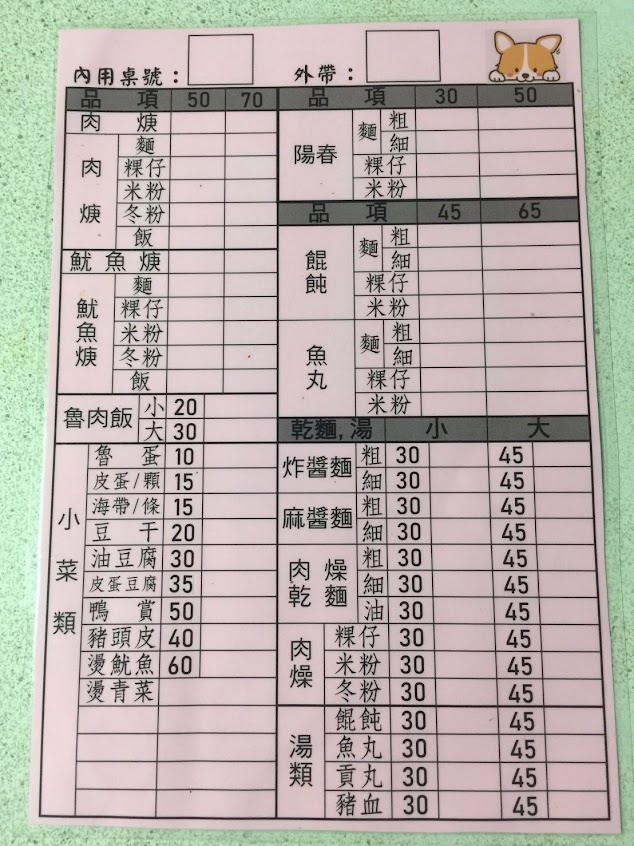 內用桌號： 外帶：
品 項 50 70
肉 焿
肉焿 麵
粿仔
米粉
冬粉
飯
魷魚焿
魷魚焿 麵
粿仔
米粉
冬粉
飯
魯肉飯 小 20
大 30
小菜類 魯蛋 10
皮蛋/顆 15
海帶/條 15
豆干 20
油豆腐 30
皮蛋豆腐 35
鴨賞 50
豬頭皮 40
燙魷魚 60
燙青菜
品 項 30 50
陽春 麵 粗
細
粿仔
米粉
品 項 45 65
餛飩 麵 粗
細
粿仔
米粉
魚丸 麵 粗
細
粿仔
米粉
乾麵,湯 小 大
炸醬麵 粗 30 45
細 30 45
麻醬麵 粗 30 45
細 30 45
肉燥乾麵 粗 30 45
細 30 45
油 30 45
肉燥 粿仔 30 45
米粉 30 45
冬粉 30 45
湯類 餛飩 30 45
魚丸 30 45
貢丸 30 45
豬血 30 45